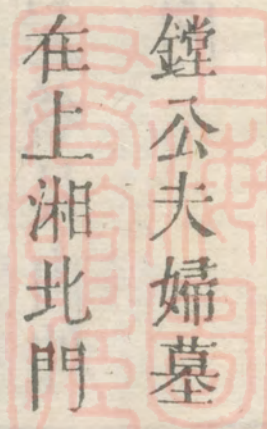 鏜公夫婦墓
在上湘北門